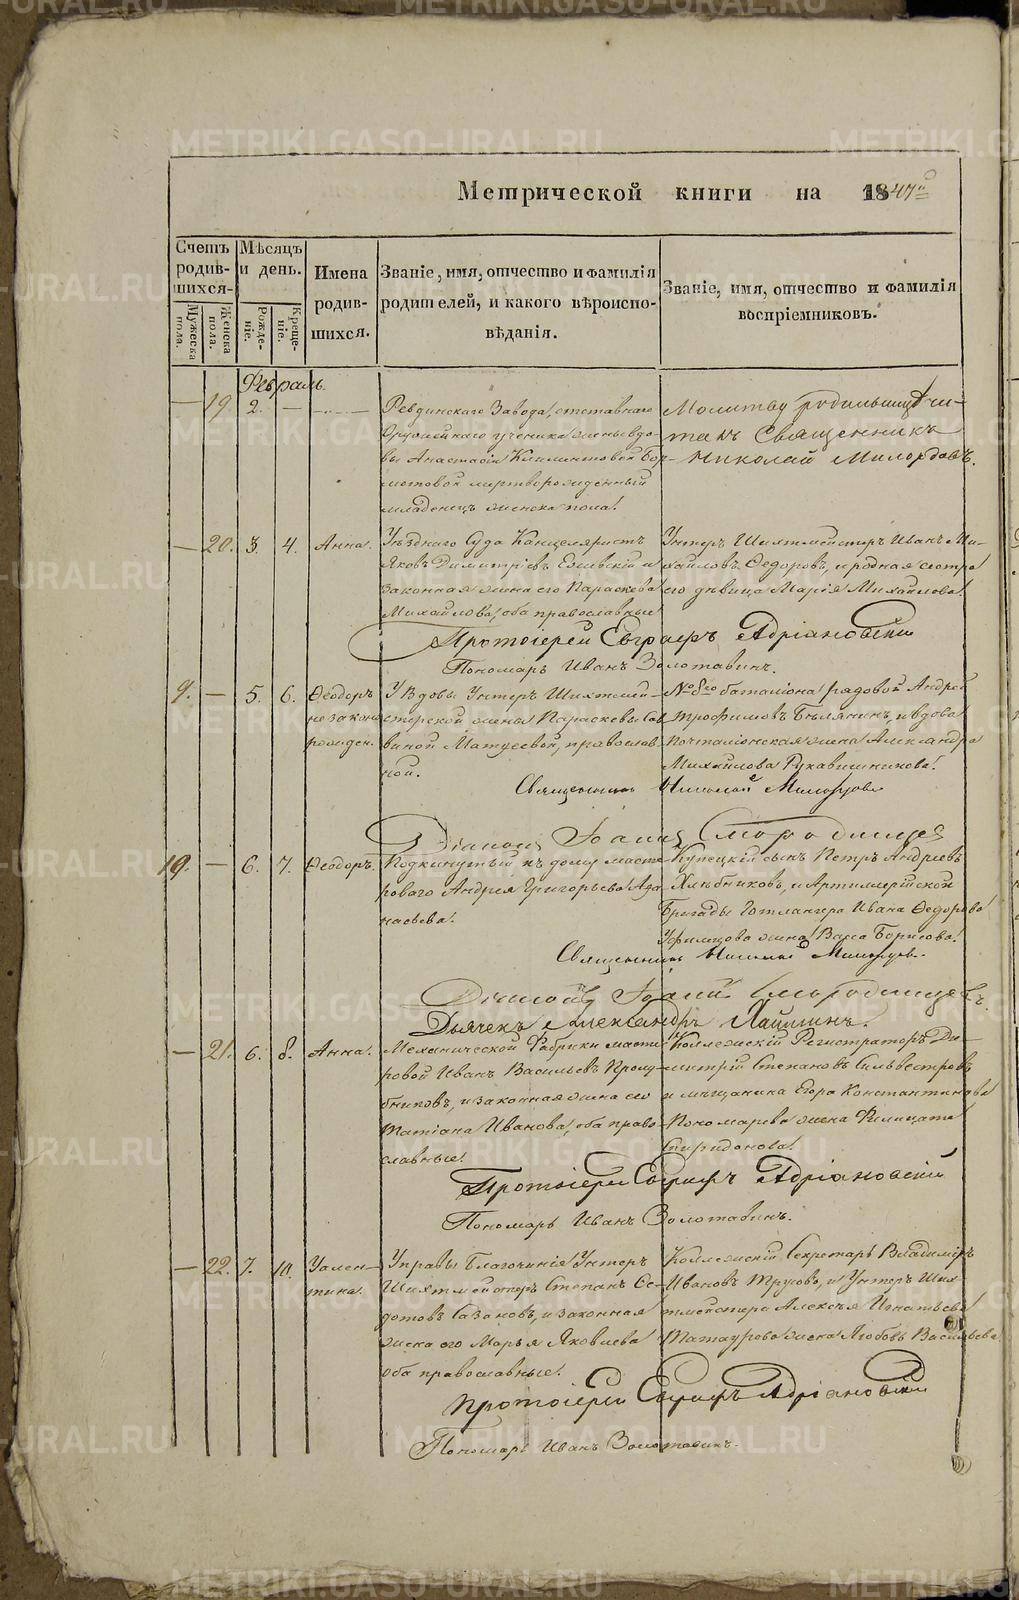 Метрической книги на 1847й
Счетъ родившихся.
Мѣсяцъ и день.
Имена родившихся.
Званіе, имя, отчество и фамилія родителей, и какого вѣроисповѣданія.
Званіе, имя, отчество и фамилія воспріемниковъ.
Мужеска пола.
Женска пола.
Рожденіе.
Крещеніе.
Февраль.
— 19. 2. —
Ревдинскаго Завода, отставнаго
ученика жены вдо-
вы Анастасіи Климентовой Бор-
мотовой мертворожденный
младенецъ женска пола.
Молитву родильницѣ чи-
талъ Священникъ
Николай Милордовъ.
— 20. 3. 4. Анна.
Уѣзднаго Суда Канцеляристъ
Яковъ Димитріевъ и
законная жена его Параскева
Михайлова, оба православные.
Унтеръ Шихтмейстеръ Иванъ Ми-
хайловъ Ѳедоровъ, и родная сестра
его дѣвица Марія Михайлова.
Протоіерей Евграфъ Адріановскій
Пономарь Иванъ Золотавинъ.
9. — 5. 6. Ѳеодоръ
незакон
рожден.
У Вдовы Унтеръ Шихтмей-
стерской жены Параскевы Сав-
виной Матѵеевой, православ-
ной.
№ 8го баталіона рядовой Андрей
Трофимовъ Бѣлянинъ, и вдова
Почталіонская жена Александра
Михайлова Рукавишникова.
Священникъ Николай Милордовъ
Діаконъ Іоаннъ Смородинцевъ
10. — 6. 7. Ѳеодоръ.
Подкинутый къ дому масте-
рового Андрея Григорьева Аѳа
насьева.
Купецкій сынъ Петръ Андреевъ
Хлѣбниковъ, и Артиллерійской
Бригады Готлангера Ивана Ѳедорова
Уфимцова жена Васса Борисова.
Священникъ Николай Милордовъ
Діаконъ Іоаннъ Смородинцевъ.
Дьячекъ Александръ
— 21. 6. 8. Анна.
Механической Фабрики масте-
ровой Иванъ Васильевъ
и законная жена его
Татіана Иванова, оба право-
славные.
Коллежскій Регистраторъ Ди-
митрій Степановъ Сильвестровъ
и мѣщанина Егора Константинова
Пономарева жена Филицата
Спиридонова.
Протоіерей Евграфъ Адріановскій
Пономарь Иванъ Золотавинъ.
— 22. 7. 10. Уален-
тина.
Управы Благочинія Унтеръ
Шихтмейстеръ Степанъ Ѳе-
дотовъ Казановъ, и законная
жена его Марья Яковлева
оба православные.
Коллежскій Секретарь Владиміръ
Ивановъ Трусовъ, и Унтеръ Ших-
тмейстера Алексѣя Игнатьева
Татаурова жена Любовь Васильева
Протоіерей Евграфъ Адріановскій
Пономарь Иванъ Золотавинъ.
METRIKI.GASO-URAL.RU